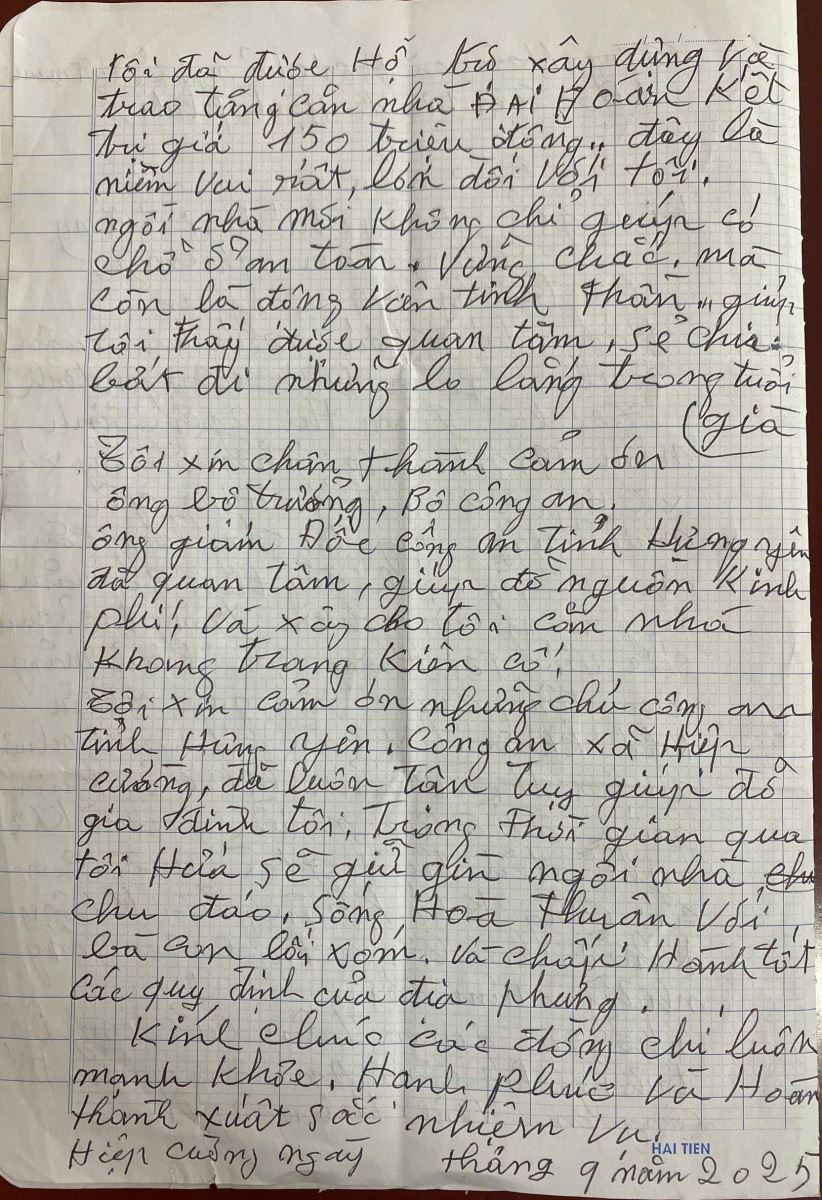 Tôi đã được Hỗ trợ xây dựng và
trao tặng căn nhà ĐẠI Đoàn Kết
trị giá 150 triệu đồng,, đây là
niềm vui rất, lớn đối với tôi.
ngôi nhà mới không chỉ giúp có
chỗ ở an toàn. vững chắc, mà
còn là động viên tinh thần,, giúp
tôi thấy được quan tâm, sẻ chia.
bớt đi những lo lắng trong tuổi
(già
Tôi xin chân thành cảm ơn
ông bộ trưởng, Bộ công an.
ông giám Đốc công an tỉnh Hưng yên
đã quan tâm, giúp đỡ nguồn kinh
phí, và xây cho tôi căn nhà
khang trang kiên cố,
Tôi xin cảm ơn những chú công an
tỉnh Hưng yên. Công an xã Hiệp
cường, đã luôn tận tụy giúp đỡ
gia đình tôi, Trong thời gian qua
tôi Hứa sẽ giữ gìn ngôi nhà
chu đáo, sống Hoà thuận với,
bà con lối xóm. và chấp Hành tốt
các quy định của địa phưng.
Kính chúc các đồng chí luôn
mạnh khỏe, Hạnh phúc và Hoàn
thành xuất sắc nhiệm vụ.
HAI TIEN
Hiệp cường ngày tháng 9 năm 2025